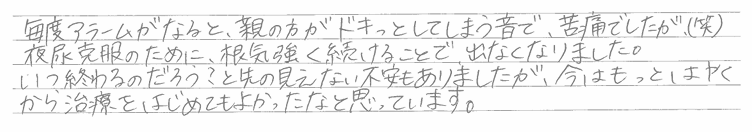 毎度アラームがなると、親の方がドキっとしてしまう音で、苦痛でしたが、(笑)
夜尿克服のために、根気強く続けることで、出なくなりました。
いつ終わるのだろう?と先の見えない不安もありましたが、今はもっとはやく
から治療をはじめてもよかったなと思っています。